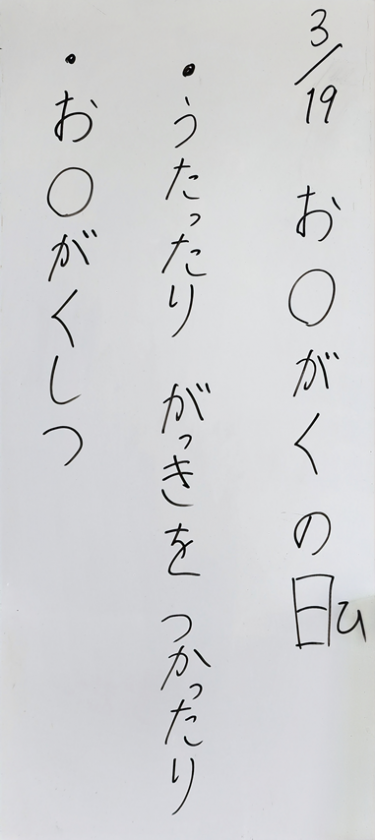 3/19 お○がくの日ひ
・うたったり がっきを つかったり
・お○がくしつ